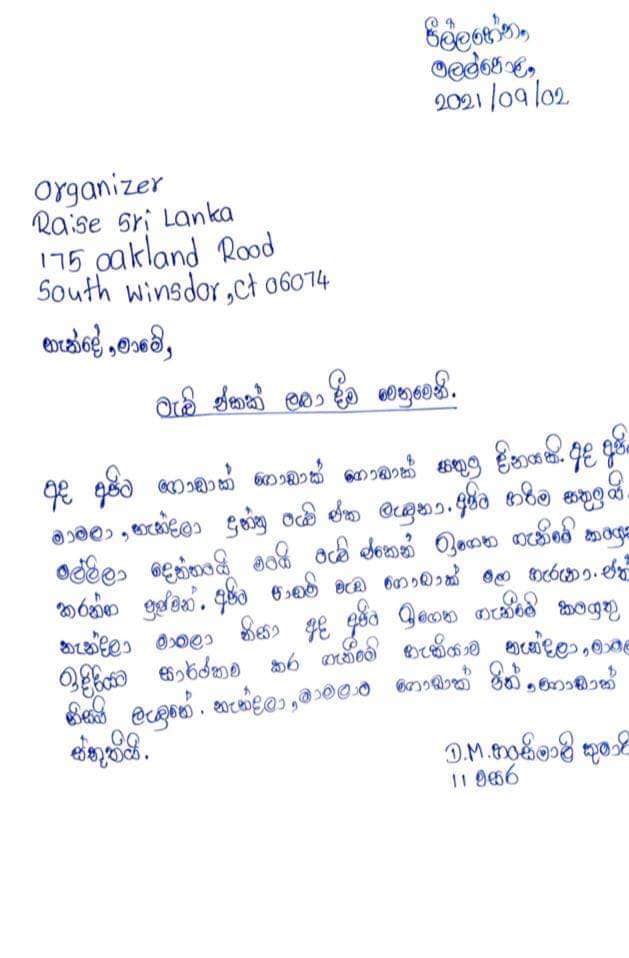 පිල්ලහේන,
මලල්පොල,
2021/09/02
Organizer
Raise Sri Lanka
175 Oakland Rood
South Winsdor, Ct 06074
නැන්දේ, මාමේ,
ටැබ් එකක් ලබා දීම වෙනුවෙනි.
අද අපිට ගොඩාක් ගොඩාක් ගොඩාක් සතුටු දිනයකි. අද අපි
මාමලා, නැන්දලා දුන්නු ටැබ් එක ලැබුනා. අපිට හරිම සතුටුයි.
මල්ලිලා දෙන්නයි මටයි ටැබ් එකෙන් ඉගෙන ගැනීමේ කටයු
කරන්න පුලුවන්. අපිට පාඩම් වැඩ ගොඩාක් මග හැරුනා. ඒත්
නැන්දලා මාමලා නිසා අද අපිට ඉගෙන ගැනීමේ කටයුතු
ඉදිරියට සාර්ථකම කර ගැනීමේ හැකියාව නැන්දලා, මාම
නිසයි ලැබුනේ. නැන්දලා, මාමලාට ගොඩාක් පින්, ගොඩාක්
ස්තුතියි.
D.M. හාසිමාලි කුමාරි
11 වසර